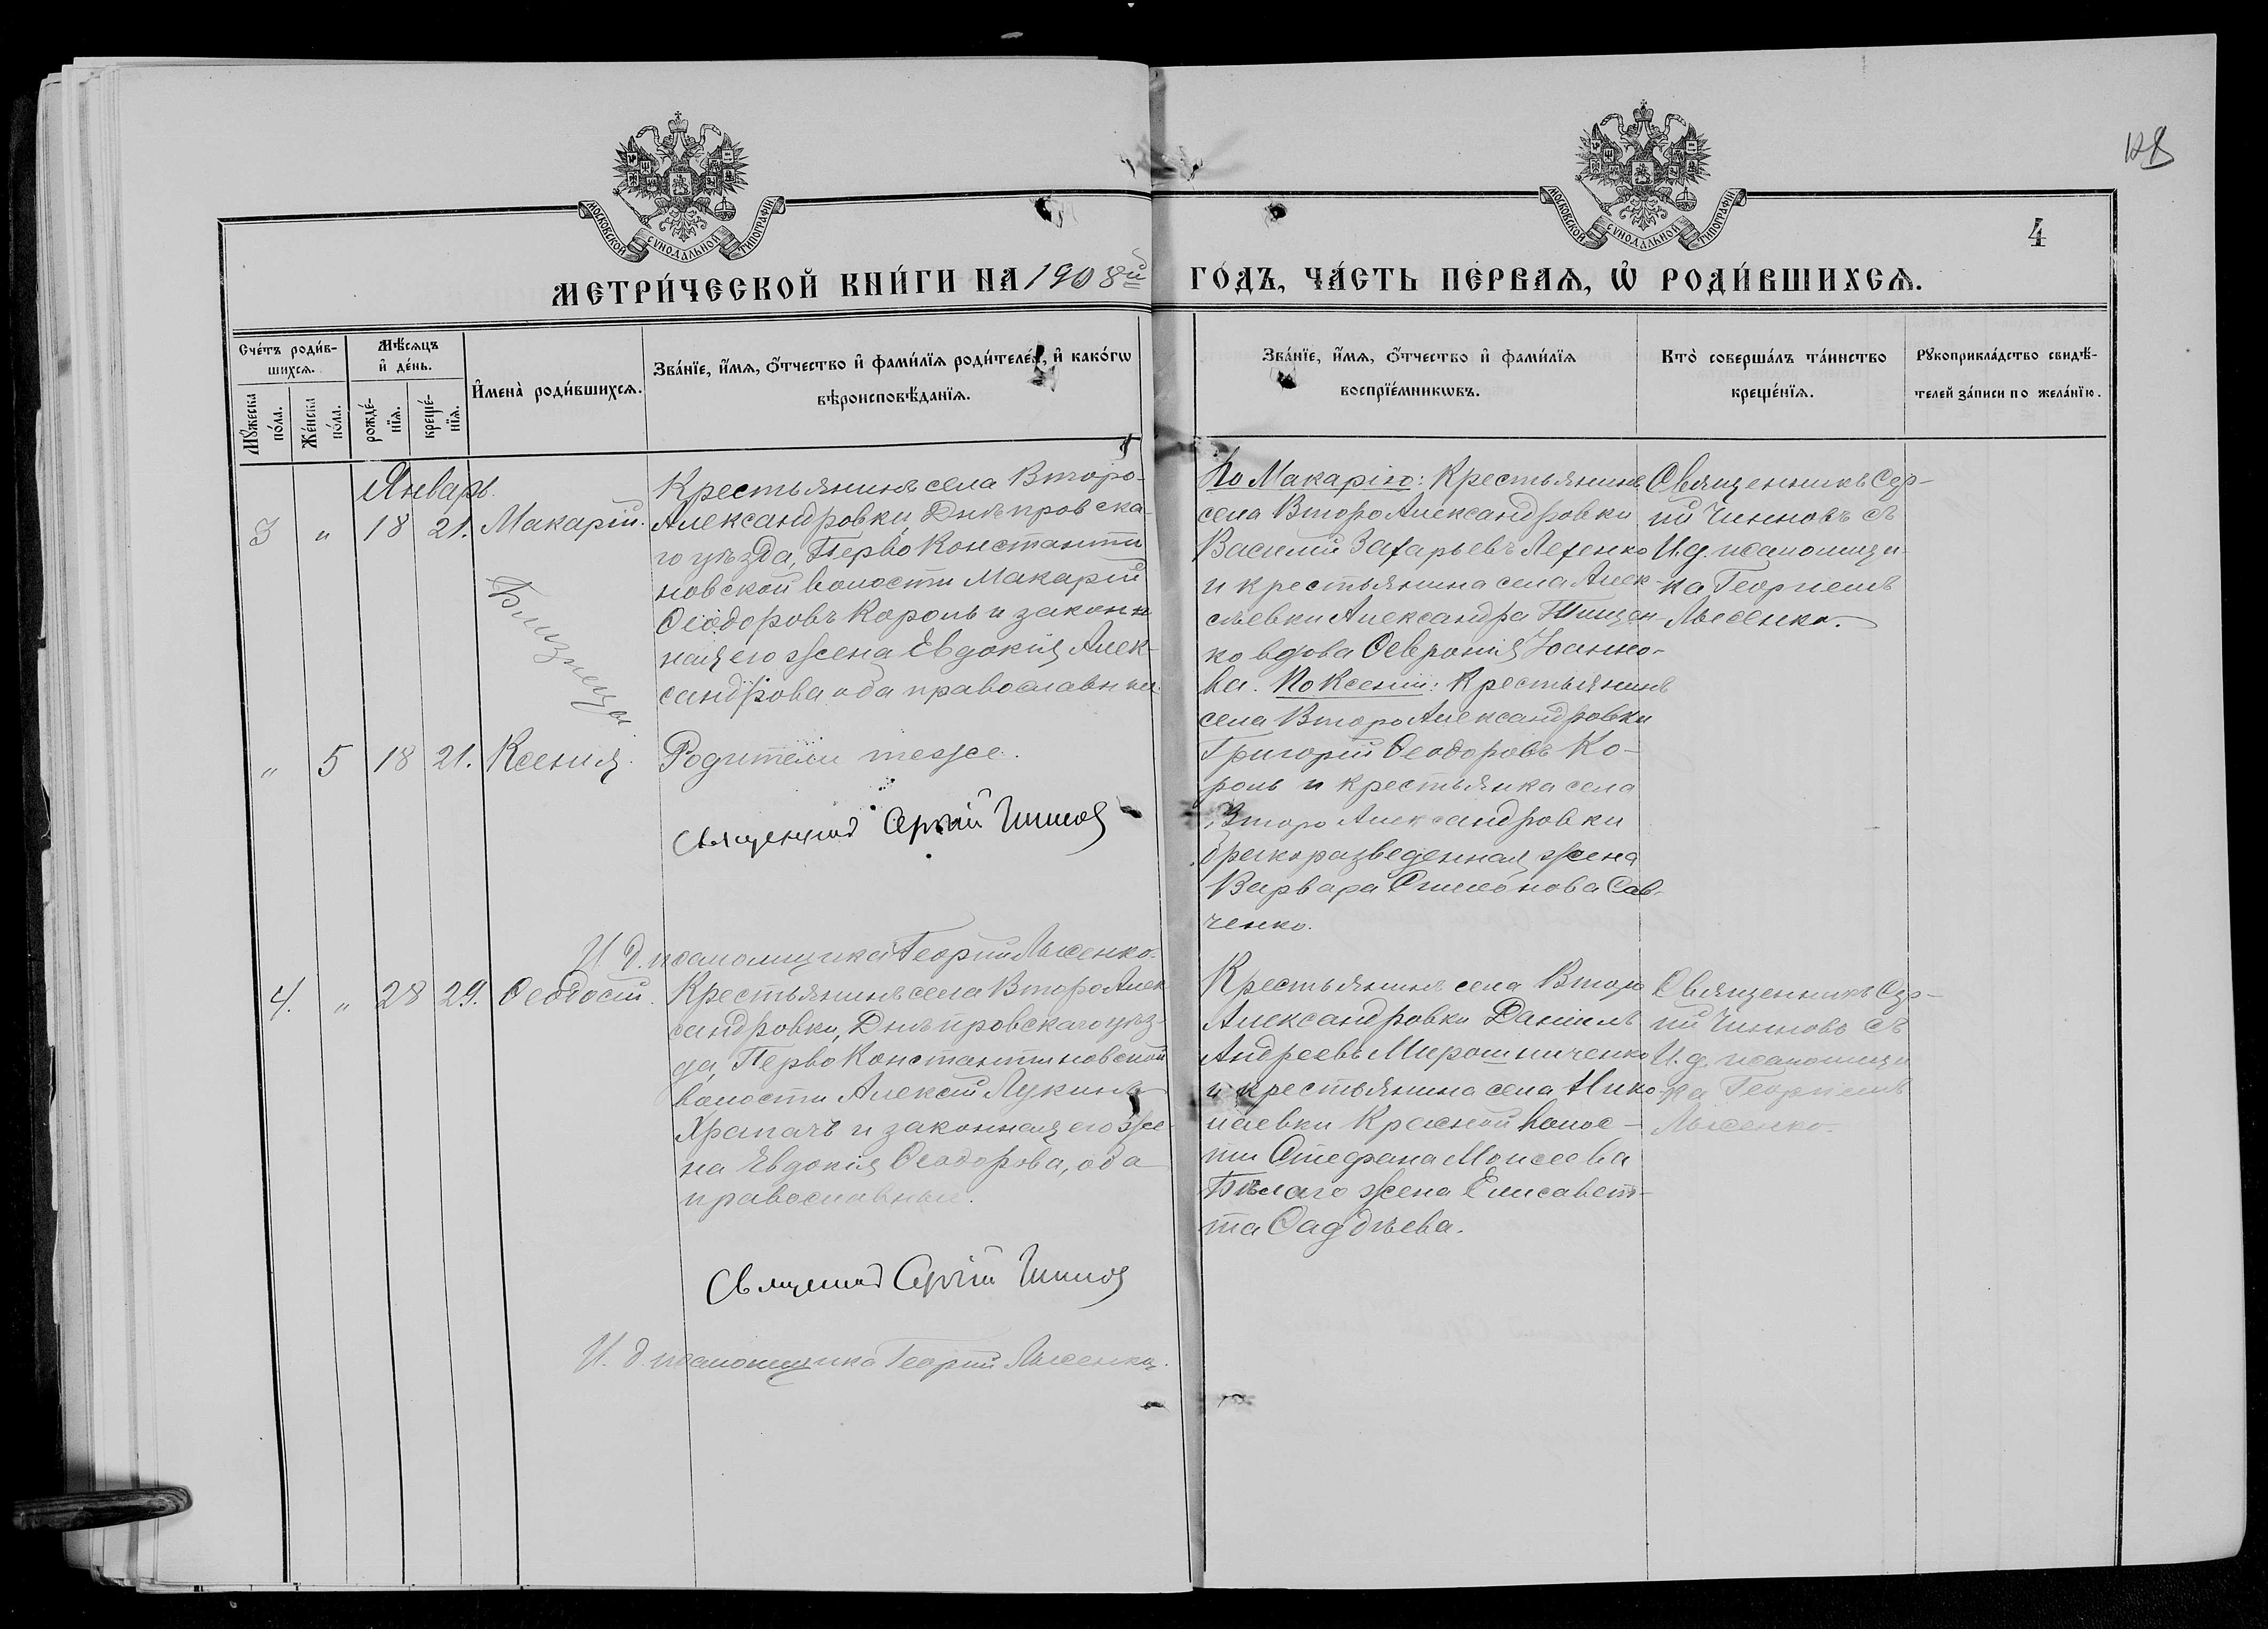 128
4
МОСКОВСКОЙ СѴНОДАЛЬНОЙ ТИПОГРАФІИ
МОСКОВСКОЙ СѴНОДАЛЬНОЙ ТИПОГРАФІИ
МЕТРИ́ЧЕСКОЙ КНИ́ГИ НА 1908й ГО́ДЪ, ЧА́СТЬ ПЕ́РВАѦ, Ѡ҆ РОДИ́ВШИХСѦ.
Сче́тъ роди́в-
шихсѧ.
Мꙋ́жеска по́ла.
Же́нска по́ла.
Мѣ́сѧцъ
и҆ де́нь.
рожде́-
нїѧ.
креще́-
нїѧ.
И҆мена̀ роди́вшихсѧ.
Зва́нїе, и҆́мѧ, ѻ҆́тчество и҆ фами́лїѧ роди́телей, и҆ како́гѡ
вѣроисповѣ́данїѧ.
Зва́нїе, и҆́мѧ, ѻ҆́тчество и҆ фами́лїѧ
воспрїе́мникѡвъ.
Кто̀ соверша́лъ та́инство
креще́нїѧ.
Рꙋкоприкла́дство свидѣ́-
телей за́писи по жела́нїю.
Январь.
3 " 18 21. Макарій.
Крестьянинъ села Второ-
Александровки, Днѣпровска-
го уѣзда, Перво Константи
новской волости Макарій
Ѳеодоровъ Король и законн
ная его жена Евдокія Алек-
сандрова оба православные.
Близнецы
По Макарію: Крестьянинъ
села Второ Александровки
Василій Захарьевъ Лехенко
и крестьянина села Алек-
сѣевки Александра Тищен-
ко вдова Ѳеронія Іоанно-
ва. По Ксеніи: Крестьянинъ
села Второ Александровки
Григорій Ѳеодоровъ Ко-
роль и крестьянка села
Второ Александровки
бракоразведенная жена
Варвара Симеонова Сав-
ченко.
Священникъ Сер-
гій Чинновъ съ
И.д. псаломщи-
ка Георгіемъ
Лысенко.
" 5 18 21. Ксенія. Родители тѣже.
Священникъ Сергій Чинновъ
И. д. псаломщика Георгій Лысенко.
4. " 28 29. Ѳеодосій.
Крестьянинъ села Второ Алек
сандровки, Днѣпровскаго уѣз-
да, Перво Константиновской
волости Алексій Лукинъ
Храпачъ и законная его же-
на Евдокія Ѳеодорова, оба
православные.
Крестьянинъ села Второ
Александровки Даніилъ
Андреевъ Мирошниченко
и крестьянина села Нико-
лаевки Красной волос-
ти Стефана Моисеева
Бѣлаго жена Елисавет-
та Ѳаддѣева.
Священникъ Сер-
гій Чинновъ съ
И.д. псаломщи
ка Георгіемъ
Лысенко.
Священникъ Сергій Чинновъ
И. д. псаломщика Георгій Лысенко.